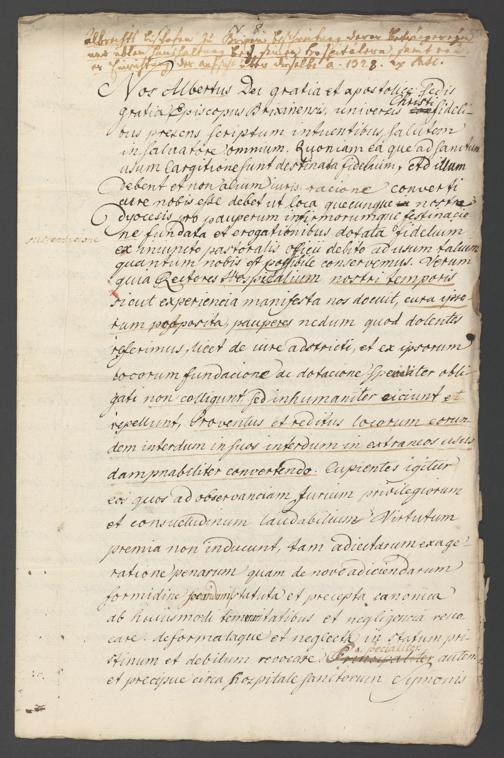 Albrecht Bischofen zu Brixen
a. 1328.
Nos Albertus Dei gratia et apostolice Sedis
gratia Episcopus Brixinensis, universis Christi fideli-
bus presens scriptum intuentibus, salutem
in salvatore omnium. Quoniam ea que ad sanctum
usum largitione sunt destinata fidelium, ad illum
debent et non alium iuris ratione converti
cure nobis esse debet ut loca quecunque nostre
Dyocesis pro pauperum infirmorumque
ne fundata et erogationibus dotata fidelium
ex iniuncto pastoralis officii debito ad usum talium
quantum nobis est possibile conservemus. Verum
quia Rectores Hospitalium nostri temporis
sicut experiencia manifesta nos docuit, cura ipso-
rum postposita, pauperes nedum quod dolentes
referimus, licet de iure adstricti, et ex ipsorum
locorum fundacione ac dotacione specialiter obli-
gati non colligunt sed inhumaniter eiciunt et
repellunt, Proventus et reditus locorum eorun-
dem interdum in suos interdum in extraneos usus
dampnabiliter convertendo. Cupientes igitur
eos quos ad observanciam Jurium privilegiorum
et consuetudinum laudabilium Virtutum
premia non inducunt, tam adiectarum exage-
ratione penarum quam de novo adiciendarum
formidine secundum statuta et precepta canonica
ab huiusmodi temeritatibus et negligencia revo-
care. deformataque et neglecta in statum pri-
stinum et debitum revocare. specialiter autem
et precipue circa hospitale sanctorum Symonis